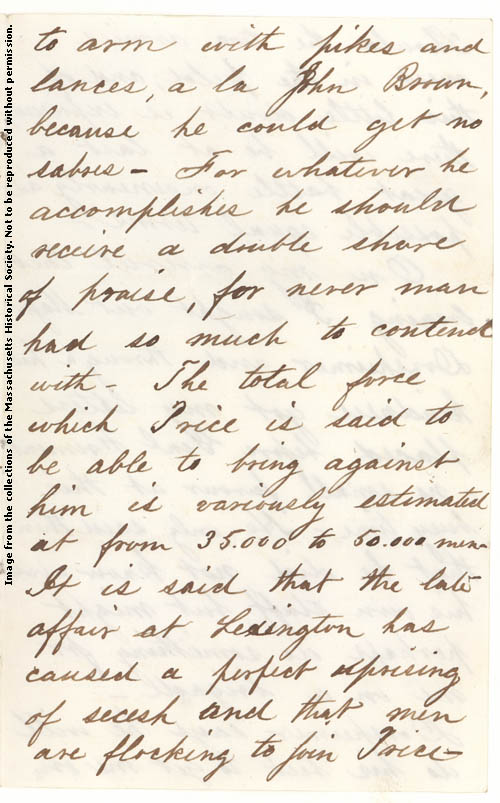 to arm with pikes and
lances, a la John Brown,
because he could get no
sabres - For whatever he
accomplishes he should
receive a double share
of praise, for never man
had so much to contend
with - The total force
which Price is said to
be able to bring against
him is variously estimated
at from 35.000 to 50.000 men -
It is said that the late
affair at Lexington has
caused a perfect uprising
of secesh and that men
are flocking to join Price -
Image from the collections of the Massachusetts Historical Society. Not to be reproduced without permission.